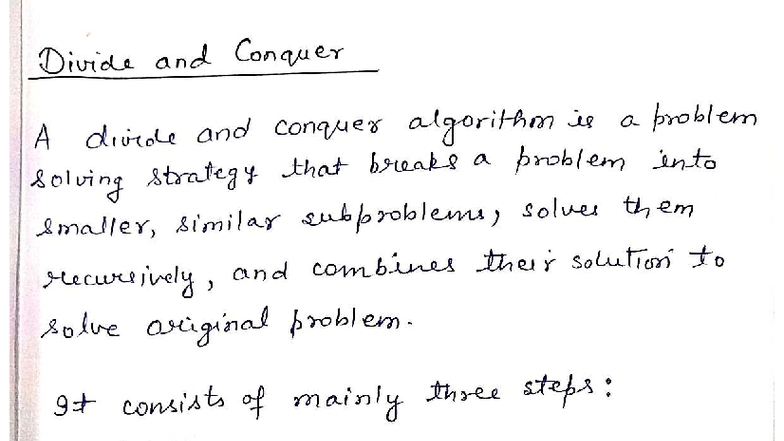 Divide and Conquer
A divide and conquer algorithm is a problem
solving strategy that breaks a problem into
smaller, similar subproblems, solves them
recursively, and combines their solution to
solve original problem.
It consists of mainly three steps: